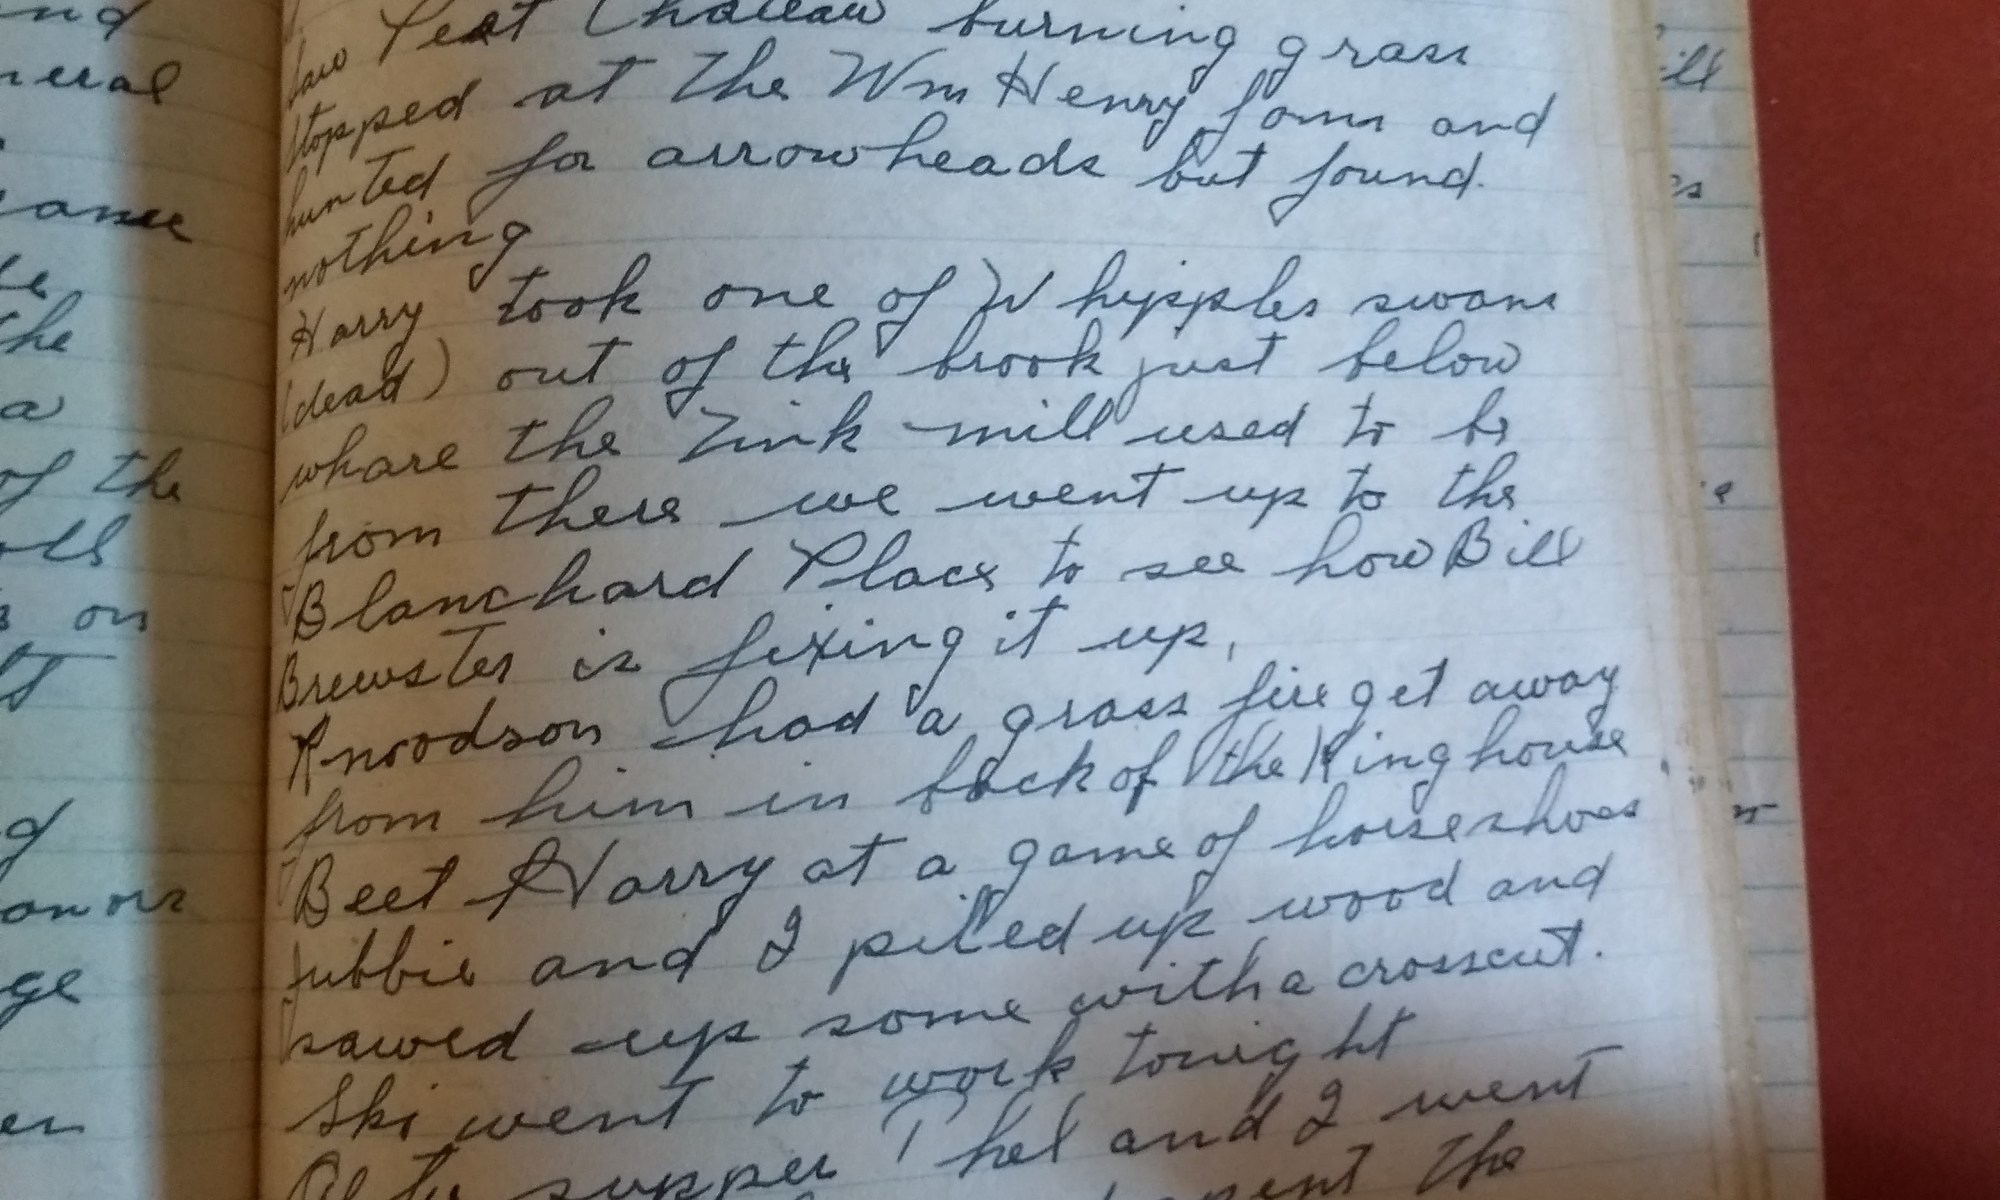 saw Peat Chateau burning grass
stopped at the Wm Henry farm and
hunted for arrowheads but found
nothing
Harry took one of Whipples swans
(dead) out of the brook just below
whare the Zink mill used to be
from there we went up to the
Blanchard Place to see how Bill
Brewster is fixing it up,
Knoodson had a grass fire get away
from him in back of the King house
Beet Harry at a game of horseshoes
Jubbie and I piled up wood and
sawed up some with a crosscut.
Ski went to work tonight
After supper Thel and I went
spent the